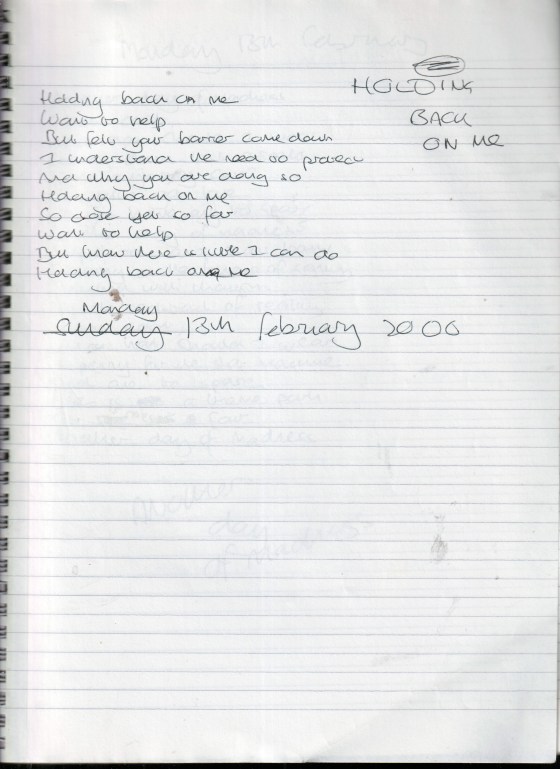 HOLDING
BACK
ON ME
Holding back on me
Want to help
But felt your barrier come down
I understand the need to protect
And why you are doing so
Holding back on me
So close yet so far
Want to help
But know there is little I can do
Holding back on me
Monday
Sunday 13th February 2000
Another
day
of Madness